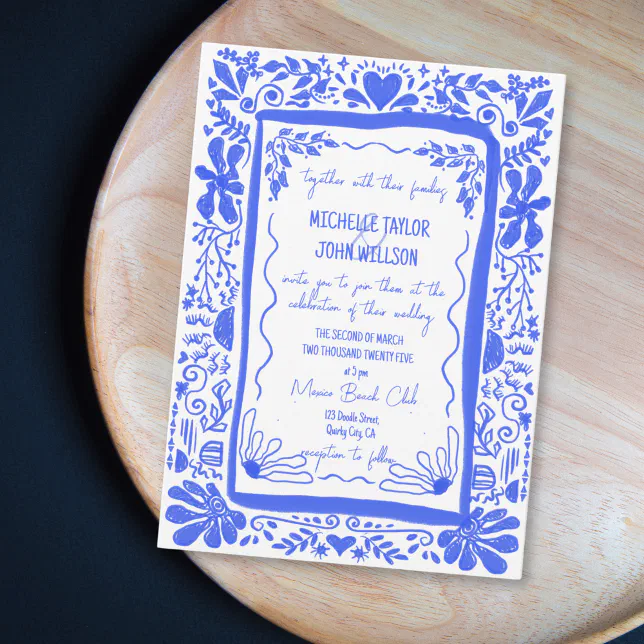 together with their families
MICHELLE TAYLOR
&
JOHN WILLSON
invite you to join them at the
celebration of their wedding
THE SECOND OF MARCH
TWO THOUSAND TWENTY FIVE
at 5 pm
Mexico Beach Club
123 Doodle Street,
Quirky City, CA
reception to follow